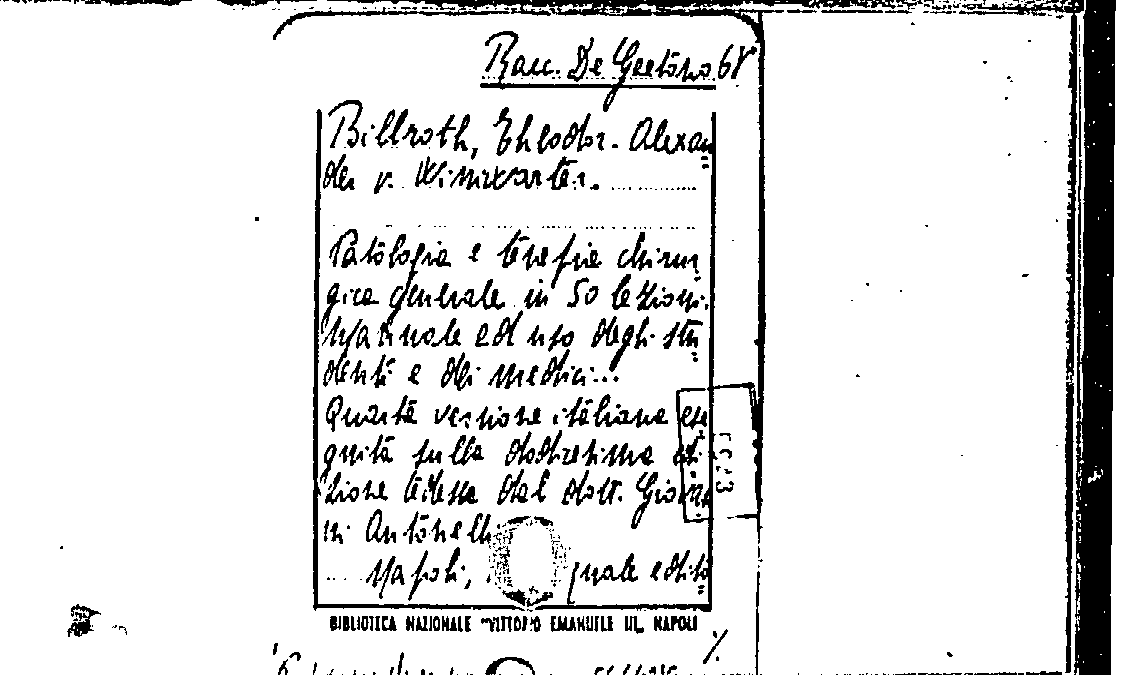 Racc. De Gaetano 68
Billroth, Theodor. Alexan
der v. Winiwarter.
Patologia e terapia chirur
gica generale in 50 lezioni.
Manuale ad uso degli stu
denti e dei medici...
Quarta versione italiana ese
guita sulla dodicesima edi
zione tedesca dal dott. Giovan
ni Antonelli
Napoli, Pasquale edito
BIBLIOTECA NAZIONALE "VITTORIO EMANUELE III„ NAPOLI